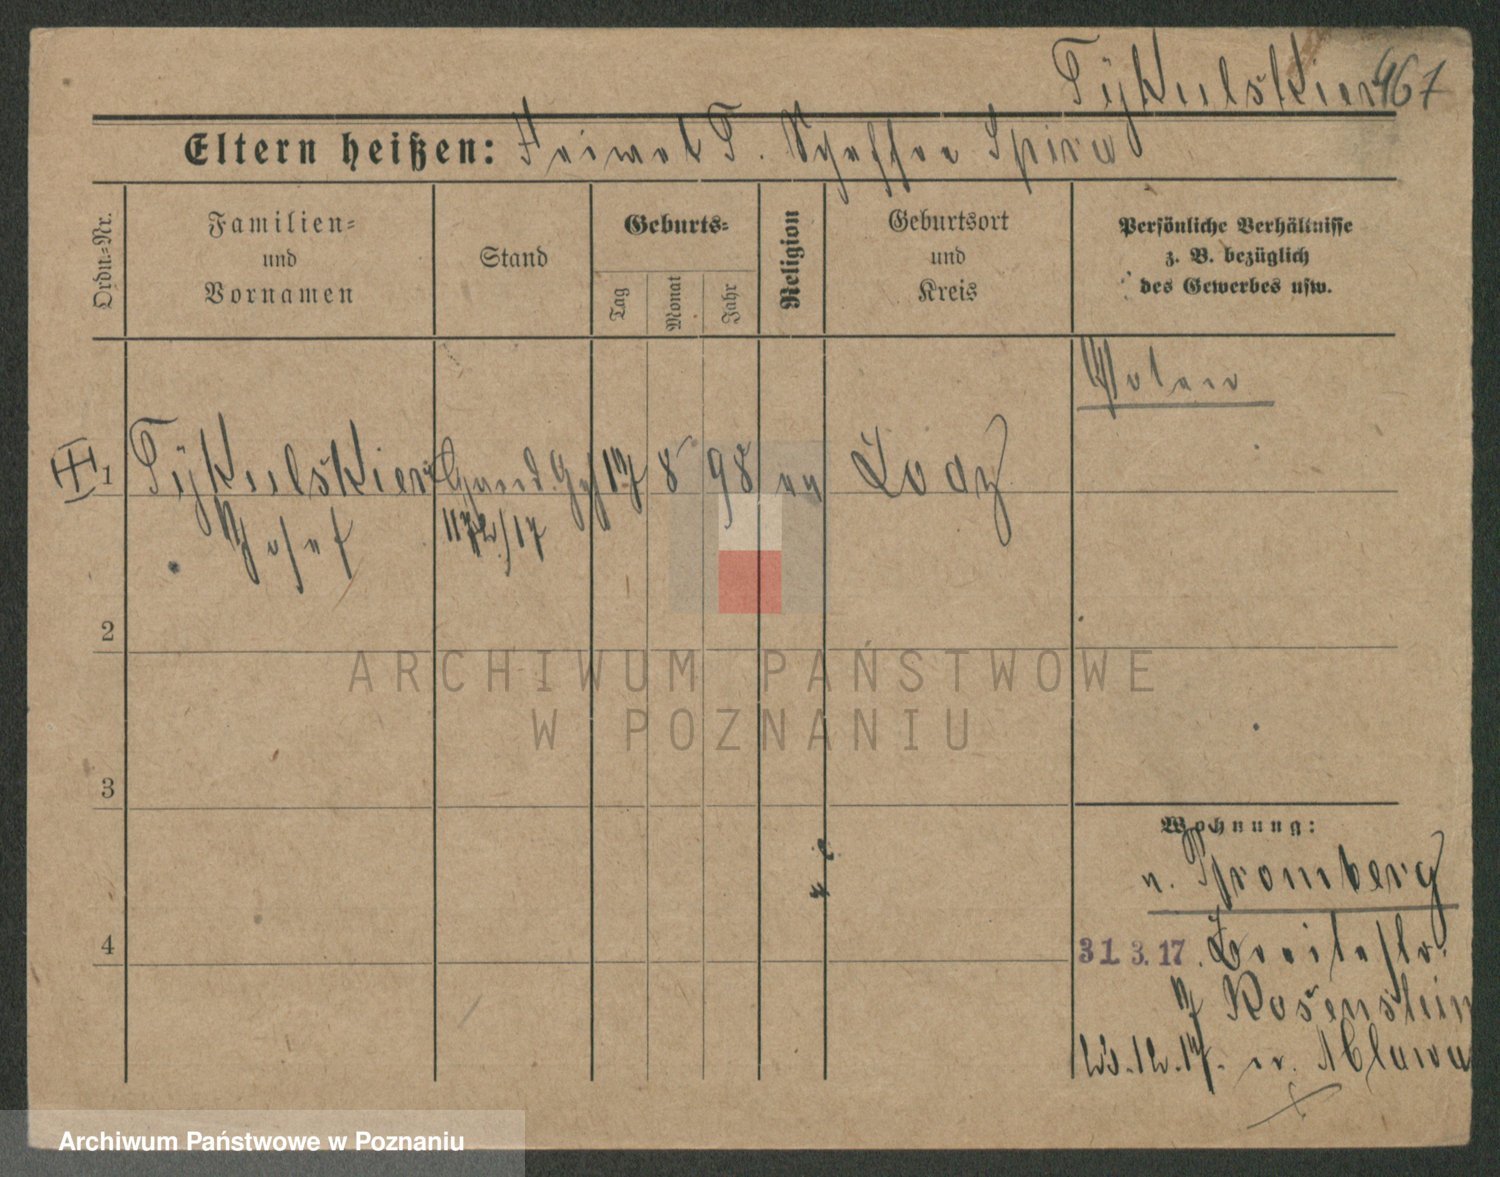 Tykulskier 467
Eltern heißen: Faiwel T. Scheffee Spira
Ordn.-Nr.
Familien-
und
Vornamen
Stand
Geburts-
Tag
Monat
Jahr
Religion
Geburtsort
und
Kreis
Persönliche Verhältnisse
z. B. bezüglich
des Gewerbes usw.
Polen
1 Tykulskier 17 8 98 Lodz
Josef
2
ARCHIWUM PAŃSTWOWE
W POZNANIU
3
Wohnung:
n. Bromberg
4
31. 3. 17. Breitestr.
7 Rosenstein
23.12.17. n. Mlawa
Archiwum Państwowe w Poznaniu